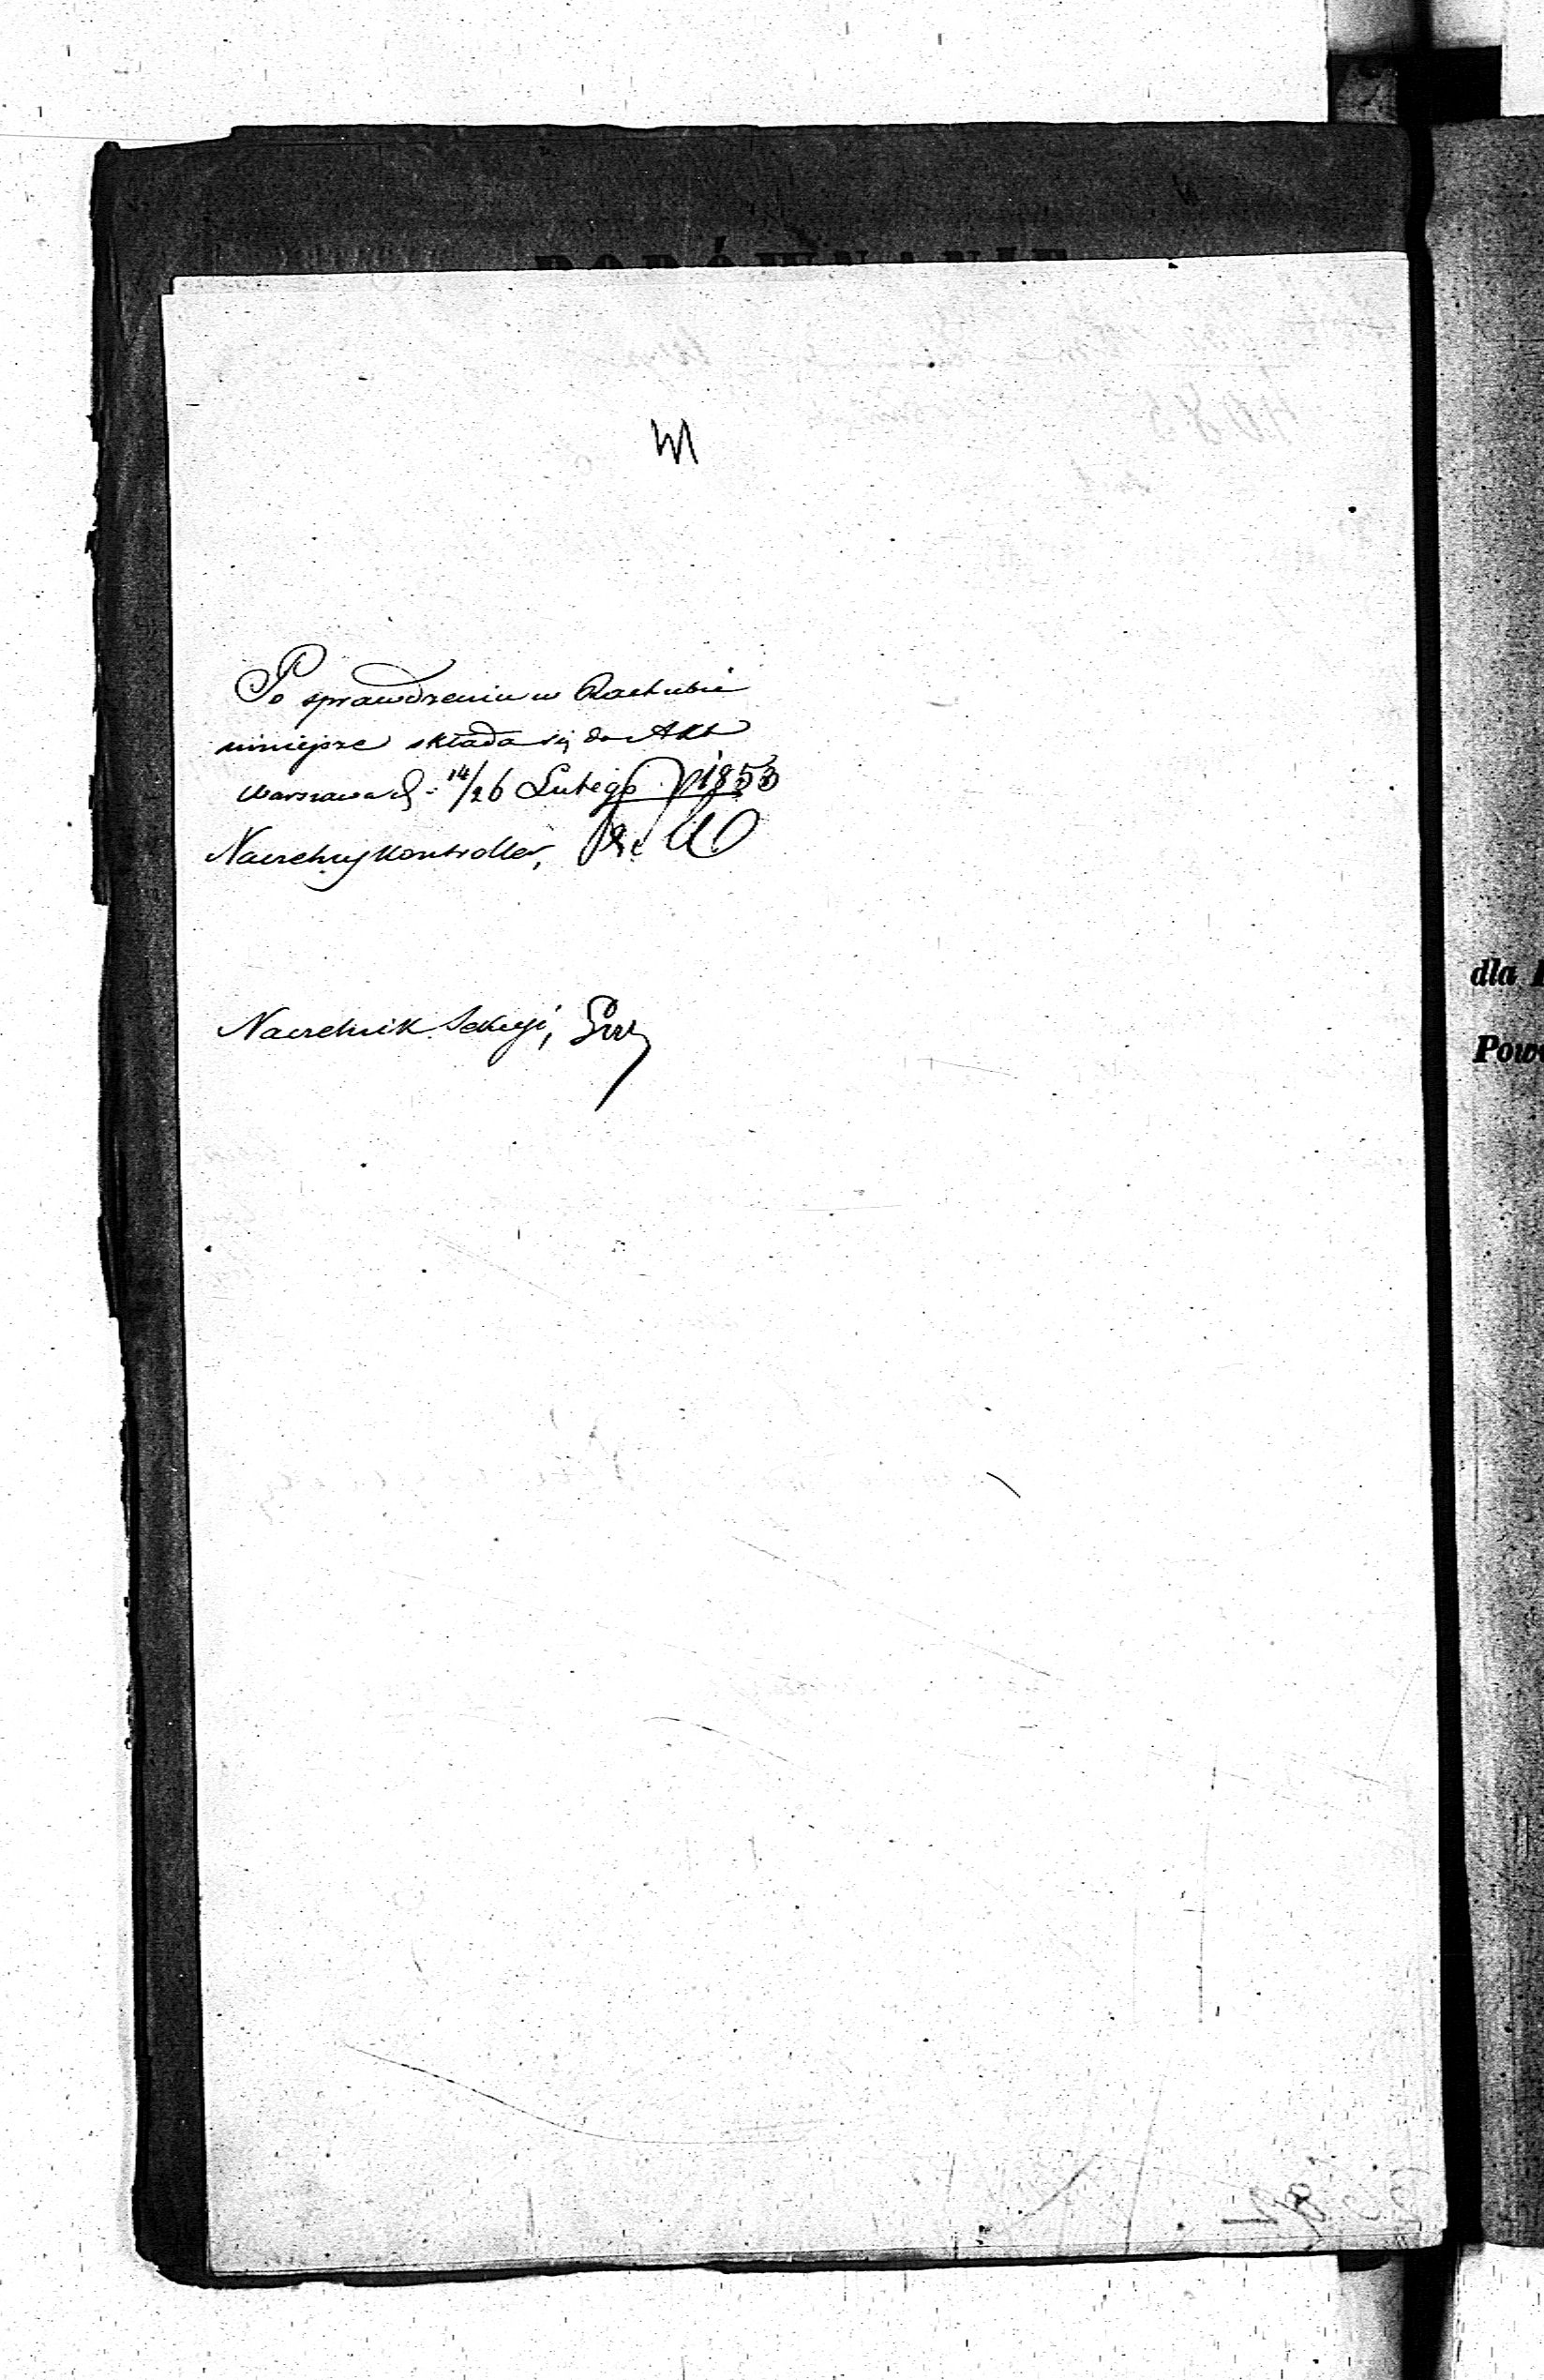 PORÓWNANIE
Po sprawdzeniu w Rachubie
niniejsze składa się do Akt
Warszawa d. 14/26 Lutego 1853
Naczelny Kontroller,
Naczelnik Sekcyi,
dla